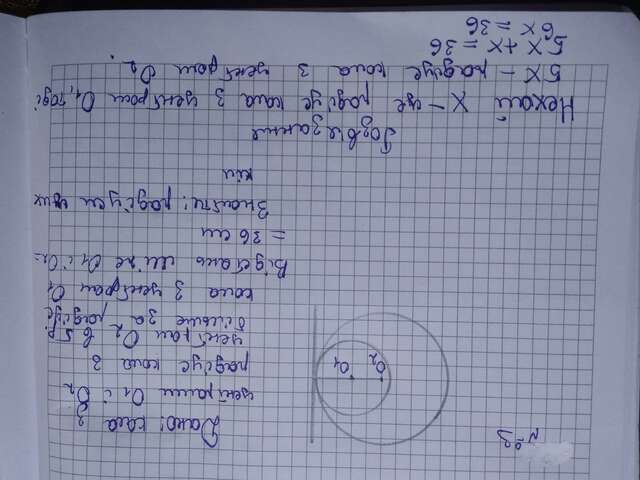 №3
Дано: кола з
центрами O₁ і O₂
радіус кола з
центрами O₂ в 5 р
більше за радіус
кола з центрам O₁
Відстань між O₁ і O₂=
= 36 см
Знайти: радіуси цих
кіл
O₂
O₁
Розв'язання
Нехай x – це радіус кола з центрам O₁, тоді
5x – радіус кола з центрам O₂.
5x + x = 36
6x = 36